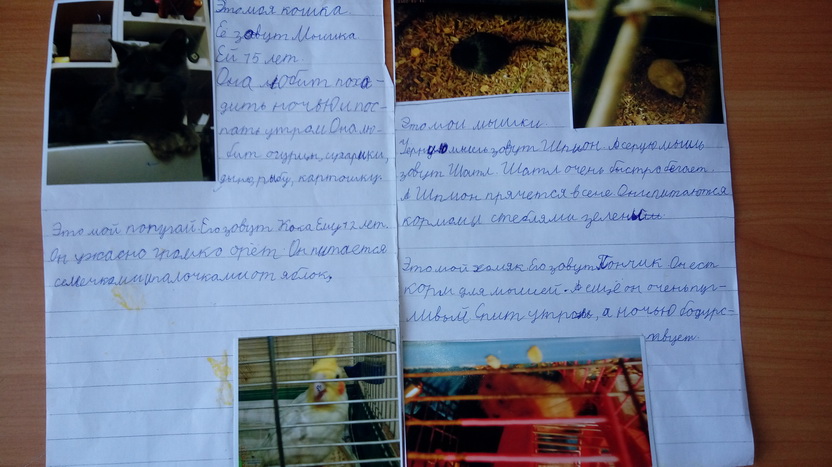 Это моя кошка.
Её зовут Мышка
Ей 15 лет
Она любит похо-
дить ночью и пос-
пать утром Она лю-
бит огурцы, сухарики,
дыню, рыбу, картошку.
Это мой попугай Его зовут Кока Ему 12 лет.
Он ужасно громко орёт Он питается
семечками и палочками от яблок,
Это мои мышки
мышь зовут Шпион А серую мышь
зовут Шатл. Шатл очень быстро бегает.
А Шпион прячется в сене. Они питаются
кормом и стеблями зелени
Это мой хомяк Его зовут Пончик Он ест
корм для мышей. А ещё он очень пуг-
ливый Спит утром, а ночью бодрс-
твует